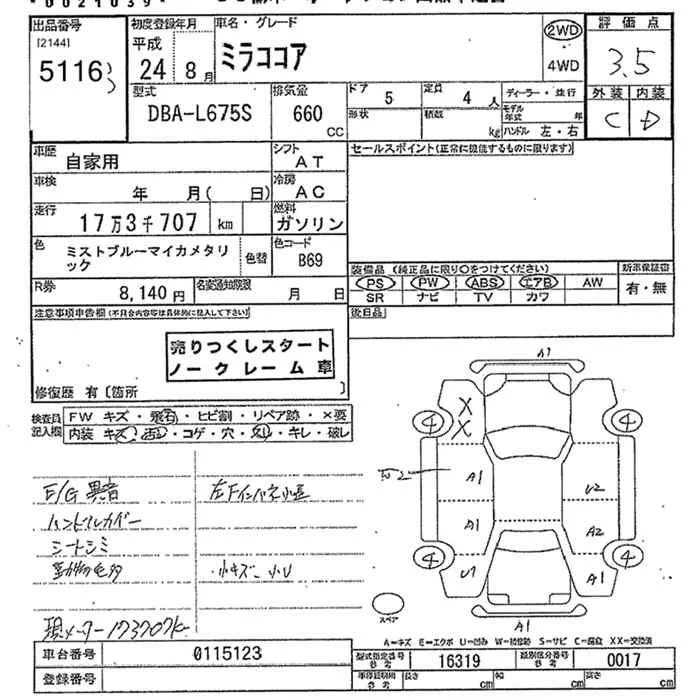 出品番号 初度登録年月 車名・グレード 2WD 評価点
[2144] 平成 ミラココア 3.5
5116 24 8月 4WD
型式 排気量 ドア 5 定員 4人 ディーラー・並行 外装 内装
DBA-L675S 660 CC 形状 積載 kg モデル年式 年 C D
ハンドル 左・右
車歴 自家用 シフト AT セールスポイント(正常に機能するものに限ります)
車検 年 月( 日) 冷房 AC
走行 17万3千707 km 燃料 ガソリン
色 ミストブルーマイカメタリック 色替 色コード B69
装備品 (純正品に限り○をつけてください) 新車保証書
PS PW ABS エアB AW 有・無
SR ナビ TV カワ
R券 8,140円 名変通知期限 月 日
注意事項申告欄(不具合内容等は具体的に記入して下さい) 後日品
売りつくしスタート
ノークレーム車
修復歴 有〔箇所 〕
検査員記入欄 FW キズ・飛石・ヒビ割・リペア跡・×要
内装 キズ・汚レ・コゲ・穴・スレ・キレ・破レ
E/G異音 左Fインパネ小
ハンドルカバー
シートシミ
動物毛多 小キズ、小U
現メーター173707K
A1
X
X
4 4
A1 U2
A1 A2
U1 A1
4 4
スペア
A1
A=キズ E=エクボ U=凹み W=補修跡 S=サビ C=腐食 XX=交換済
車台番号 0115123 型式指定番号 参考 16319 類別区分番号 参考 0017
登録番号 車庫証明用 参考 長さ cm 幅 cm 高さ cm